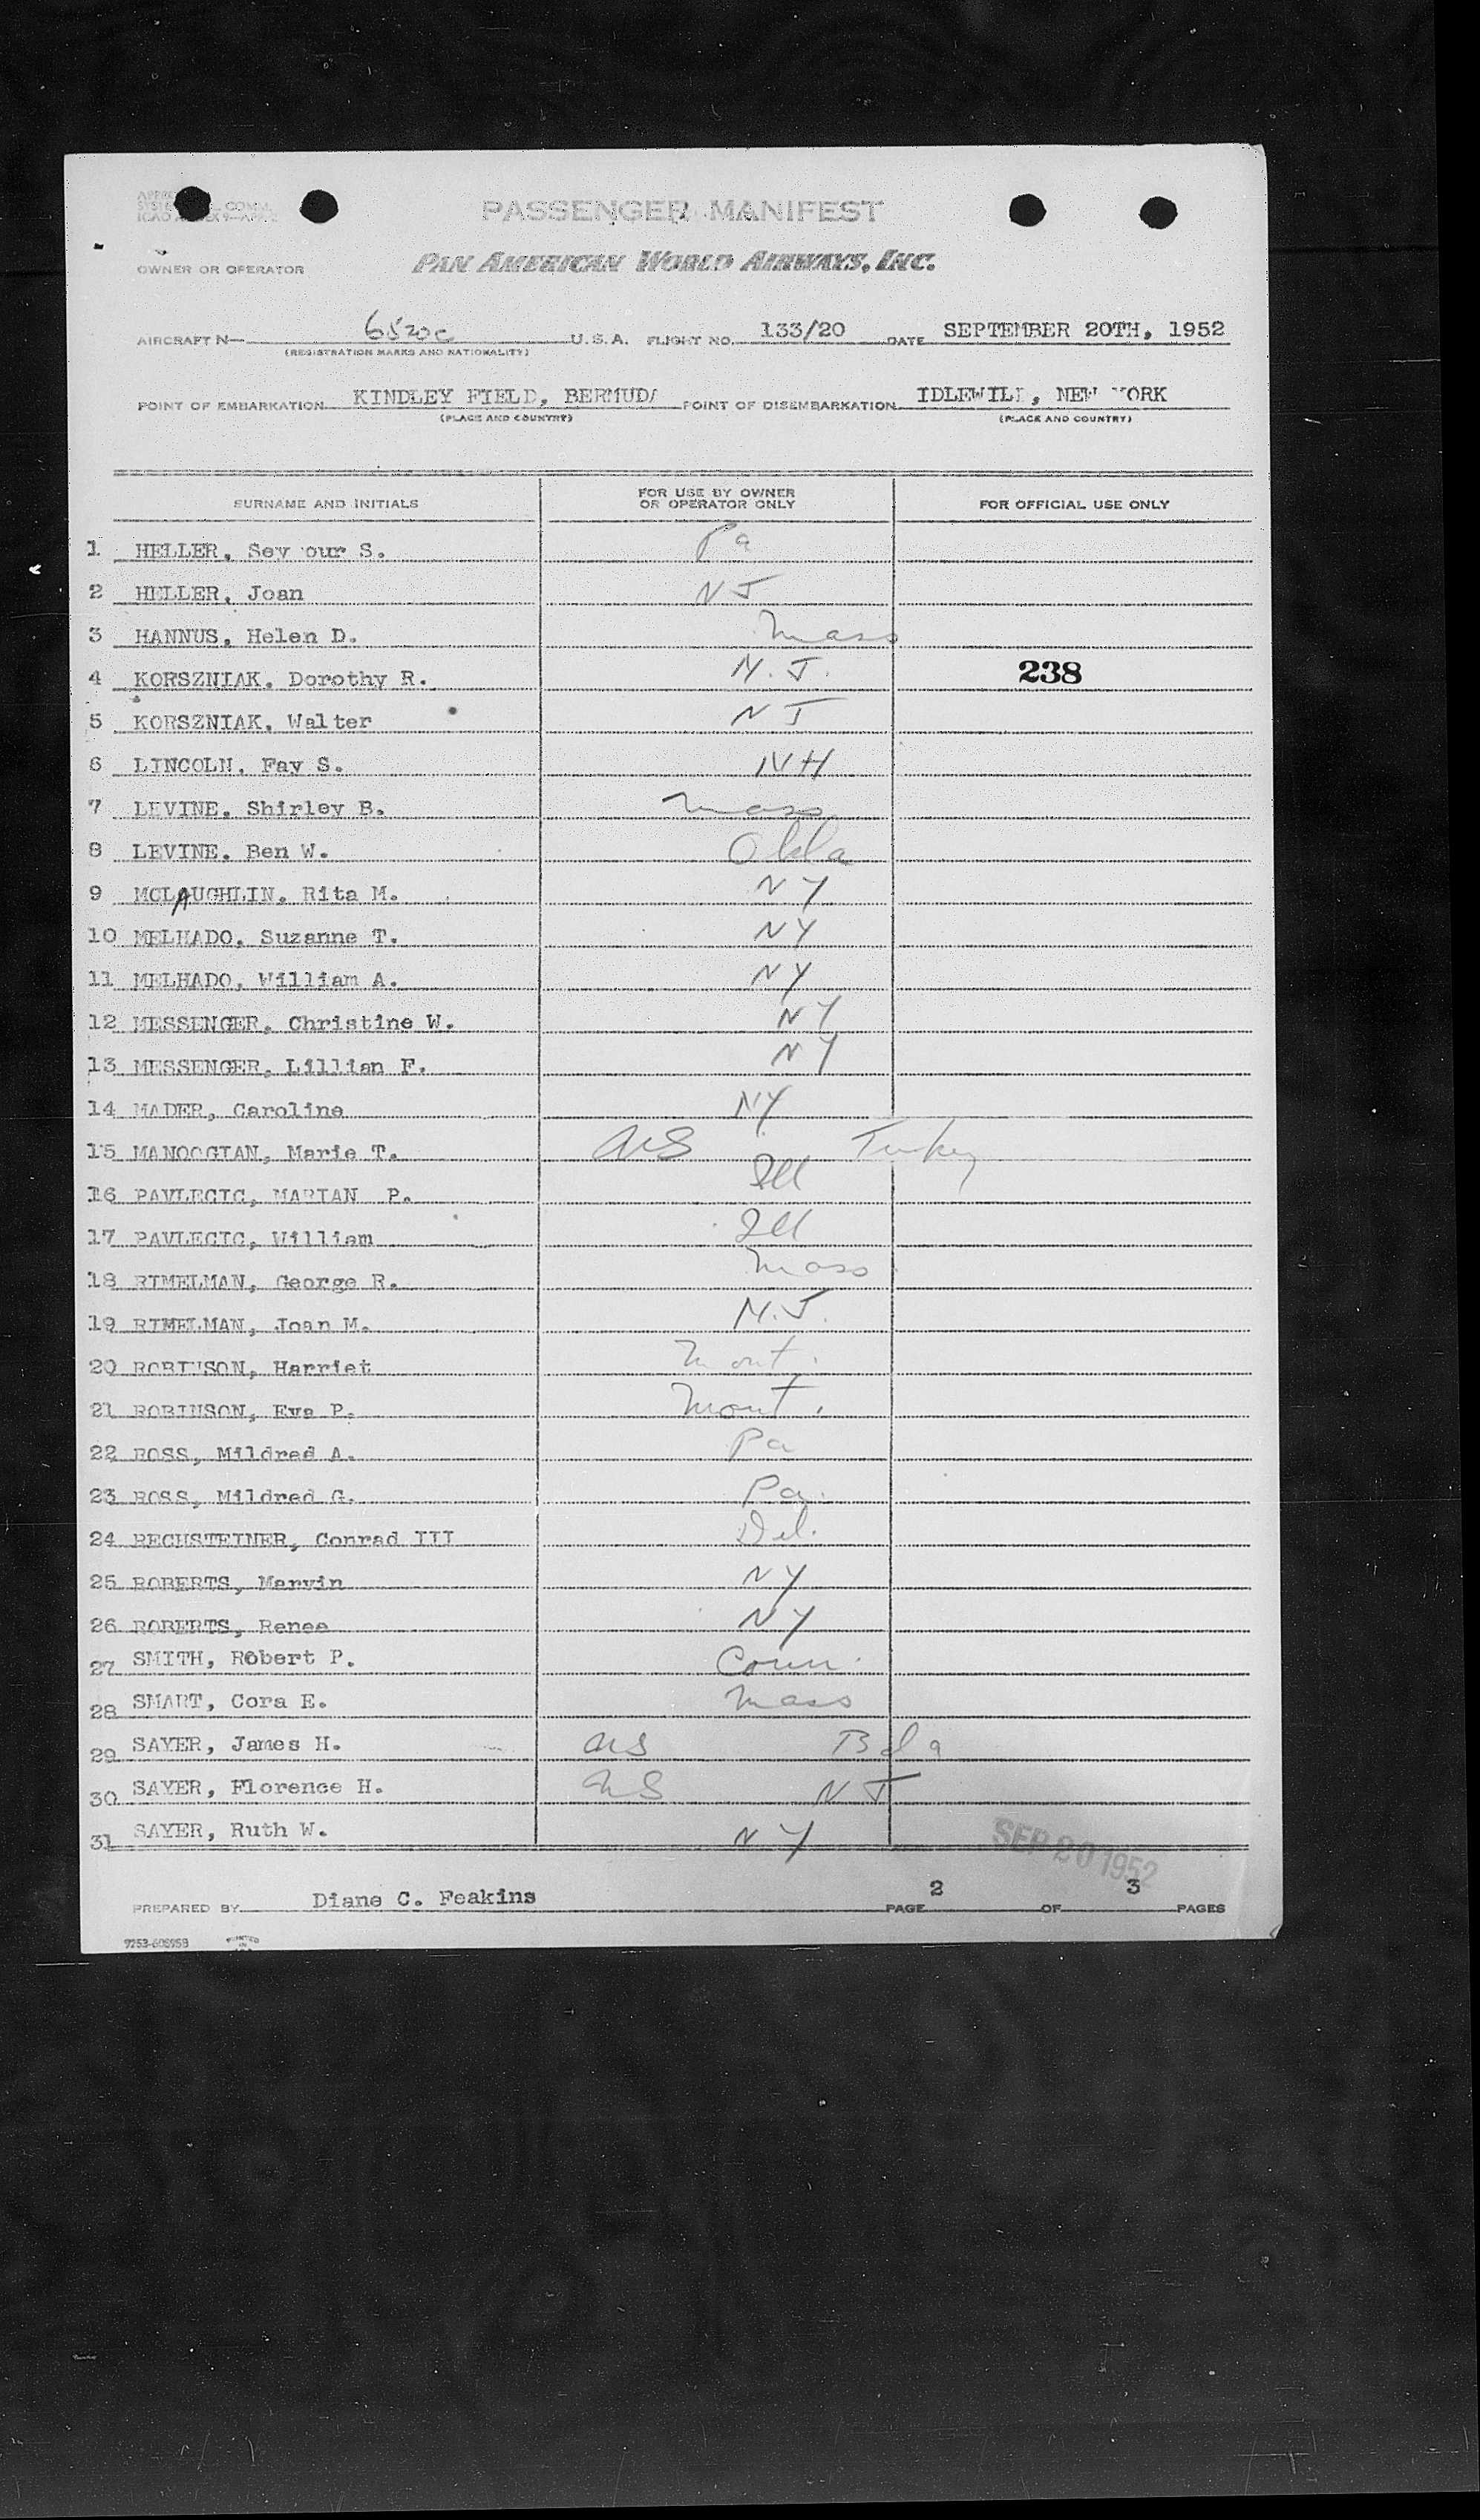 PASSENGER MANIFEST
OWNER OR OPERATOR PAN AMERICAN WORLD AIRWAYS, INC.
AIRCRAFT N— 6520C U.S.A. FLIGHT NO. 133/20 DATE SEPTEMBER 20TH, 1952
(REGISTRATION MARKS AND NATIONALITY)
POINT OF EMBARKATION KINDLEY FIELD, BERMUDA POINT OF DISEMBARKATION IDLEWILD, NEW YORK
(PLACE AND COUNTRY) (PLACE AND COUNTRY)
SURNAME AND INITIALS FOR USE BY OWNER OR OPERATOR ONLY FOR OFFICIAL USE ONLY
1 HELLER, Sey our S. Pa
2 HELLER, Joan NJ
3 HANNUS, Helen D. Mass
4 KORSZNIAK, Dorothy R. N.J. 238
5 KORSZNIAK, Walter NJ
6 LINCOLN, Fay S. NH
7 LEVINE, Shirley B. Mass
8 LEVINE, Ben W. Okla
9 MCLAUGHLIN, Rita M. NY
10 MELHADO, Suzanne T. NY
11 MELHADO, William A. NY
12 MESSENGER, Christine W. NY
13 MESSENGER, Lillian F. NY
14 MADER, Caroline NY
15 MANOOGIAN, Marie T. US Turkey
16 PAVLECIC, MARIAN P. Ill
17 PAVLECIC, William Ill
18 RIMELMAN, George R. Mass
19 RIMELMAN, Joan M. N.J.
20 ROBINSON, Harriet Mont.
21 ROBINSON, Eva P. Mont.
22 ROSS, Mildred A. Pa
23 ROSS, Mildred G. Pa.
24 RECHSTEINER, Conrad III Del.
25 ROBERTS, Marvin NY
26 ROBERTS, Renee NY
27 SMITH, Robert P. Conn.
28 SMART, Cora E. Mass
29 SAYER, James H. US Bda
30 SAYER, Florence H. US NJ
31 SAYER, Ruth W. NY
SEP 20 1952
PREPARED BY Diane C. Feakins PAGE 2 OF 3 PAGES